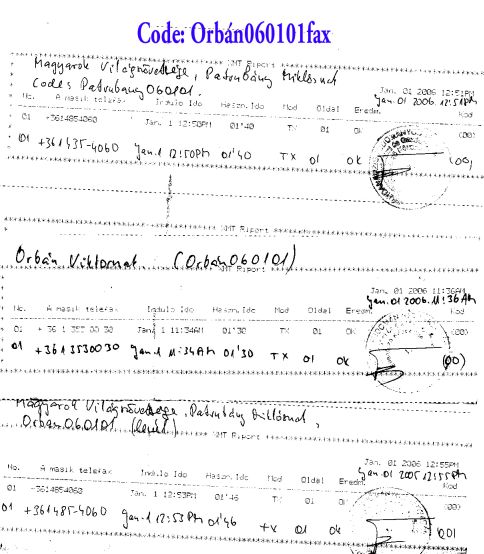 Code: Orbán060101fax
XMT Riport
Magyarok Világszövetsége, Patrubány Miklósnak
Codes Patrubany060101.
Jan. 01 2006 12:51PM
Jan. 01 2006. 12:51PM
No. A masik telefax Indulo Ido Haszn. Ido Mod Oldal Eredm. Kod
01 +3614854060 Jan. 1 12:50PM 01'40 TX 01 (00)
01 +361435-4060 Jan. 1 12:50PM 01'40 TX 01 OK (00)
XMT Riport
Orbán Viktornak (Orban060101)
XMT Riport
Jan. 01 2006 11:36AM
Jan. 01 2006. 11:36AM
No. A masik telefax Indulo Ido Haszn. Ido Mod Oldal Eredm. Kod
01 + 36 1 353 00 30 Jan. 1 11:34AM 01'30 TX 01 OK (00)
01 +3613530030 Jan. 1 11:34AM 01'30 TX 01 OK (00)
Magyarok Világszövetsége, Patrubány Miklósnak,
Orban060101 (levél)
XMT Riport
Jan. 01 2006 12:55PM
Jan. 01 2005 12:55PM
No. A masik telefax Indulo Ido Haszn. Ido Mod Oldal Eredm. Kod
01 +3614854060 Jan. 1 12:53PM 01'46 TX 01 OK (00)
01 +361485-4060 Jan. 1 12:53PM 01'46 TX 01 OK (00)